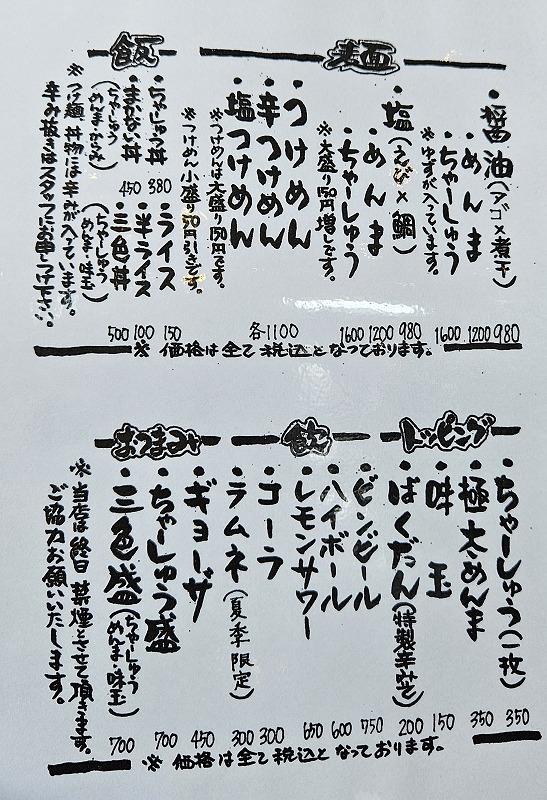 麺
・醤油(アゴ×煮玉) 980
・めんま 1200
・ちゃーしゅう 1600
※ゆずが入っています。
・塩(えび×鯛) 980
・めんま 1200
・ちゃーしゅう 1600
※大盛り150円増しです。
・つけめん
・辛つけめん
・塩つけめん
各1100
※つけめんは大盛り150円です。
※つけめん小盛り50円引きです。
飯
・ちゃーしゅう丼 380
・まかない丼 450
(ちゃーしゅう
めんま・からみ)
・ライス 150
・半ライス 100
・三色丼 500
(ちゃーしゅう
めんま・味玉)
※つけ麺、丼物には辛みが入っています。
辛み抜きはスタッフにお申しつけ下さい。
※価格は全て税込となっております。
トッピング
・ちゃーしゅう(一枚) 350
・極太めんま 350
・味玉 150
・ばくだん(特製辛みそ) 200
飲
・ビンビール 750
・ハイボール 600
・レモンサワー 650
・コーラ 300
・ラムネ(夏季限定) 300
おつまみ
・ギョーザ 450
・ちゃーしゅう盛 700
・三色盛(ちゃーしゅう
めんま・味玉) 700
※当店は終日禁煙とさせて頂きます。
ご協力お願いいたします。
※価格は全て税込となっております。